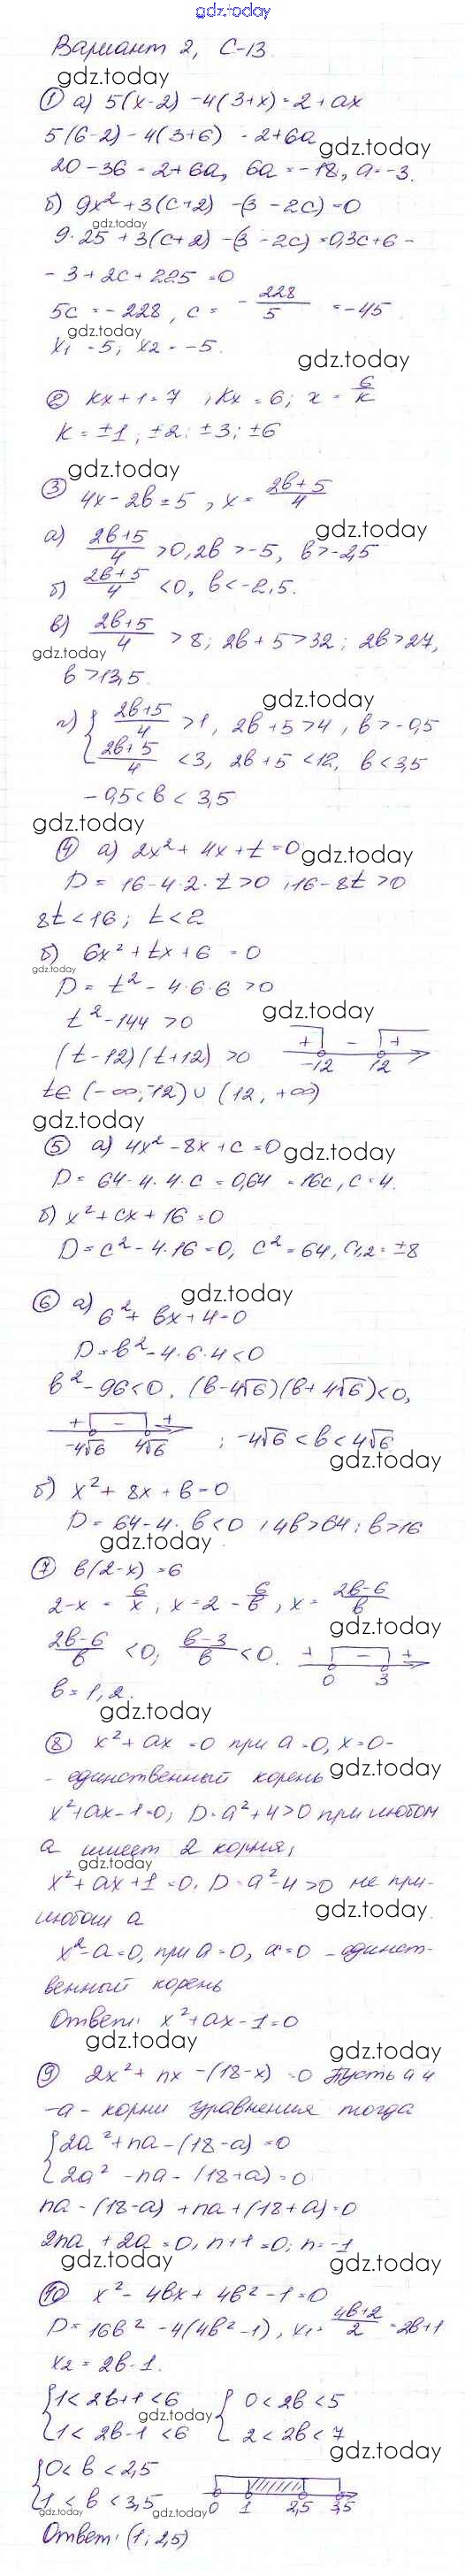 gdz.today
Вариант 2, С-13
gdz.today
① а) 5(x-2) -4(3+x) = 2 + ax
5(6-2) - 4(3+6) - 2+6a
gdz.today
20 - 36 - 2 + 6a, 6a = -18, a = -3.
б) 9x² + 3(c+2) -(3 - 2c) = 0
gdz.today
9·25 + 3(c+2) - (3 - 2c) = 0, 3c+6 -
- 3 + 2c + 225 = 0
5c = - 228, c = - 228/5 = -45
gdz.today
x₁ - 5; x₂ = -5.
gdz.today
② kx + 1 = 7, kx = 6; x = 6/k
k = ±1; ±2; ±3; ±6
gdz.today
③ 4x - 2b = 5, x = (2b+5)/4
gdz.today
а) (2b+5)/4 > 0, 2b > -5, b > -2,5
б) (2b+5)/4 < 0, b < -2,5.
в) (2b+5)/4 > 8; 2b + 5 > 32; 2b > 27,
gdz.today
b > 13,5
gdz.today
г) { (2b+5)/4 > 1, 2b + 5 > 4, b > -0,5
{ (2b+5)/4 < 3, 2b + 5 < 12, b < 3,5
- 0,5 < b < 3,5
gdz.today
④ а) 2x² + 4x + t = 0
gdz.today
D = 16 - 4·2·t > 0, 16 - 8t > 0
8t < 16; t < 2
б) 6x² + tx + 6 = 0
gdz.today
D = t² - 4·6·6 > 0
gdz.today
t² - 144 > 0
(t - 12)(t + 12) > 0
+ - +
-12 12
t ∈ (-∞; -12) ∪ (12, +∞)
gdz.today
⑤ а) 4x² - 8x + c = 0
gdz.today
D = 64 - 4·4·c = 0, 64 = 16c, c = 4.
б) x² + cx + 16 = 0
D = c² - 4·16 = 0, c² = 64, c₁,₂ = ±8
gdz.today
⑥ а) 6² + bx + 4 = 0
D = b² - 4·6·4 < 0
b² - 96 < 0, (b - 4√6)(b + 4√6) < 0,
+ - +
-4√6 4√6 ; -4√6 < b < 4√6
gdz.today
б) x² + 8x + b = 0
D = 64 - 4·b < 0, 4b > 64; b > 16
gdz.today
⑦ b(2-x) = 6
2 - x = 6/x; x = 2 - 6/b, x = (2b-6)/b
gdz.today
(2b-6)/b < 0; (b-3)/b < 0.
+ - +
0 3
b = 1, 2.
gdz.today
⑧ x² + ax = 0 при a = 0, x = 0 -
- единственный корень
gdz.today
x² + ax - 1 = 0; D = a² + 4 > 0 при любом
a имеет 2 корня,
gdz.today
x² + ax + 1 = 0. D = a² - 4 > 0 не при-
любом a
gdz.today
x² - a = 0, при a = 0, x = 0 - единст-
венный корень
Ответ: x² + ax - 1 = 0
gdz.today
gdz.today
⑨ 2x² + nx - (18 - x) = 0 Пусть a и
-a - корни уравнения тогда
{ 2a² + na - (18 - a) = 0
{ 2a² - na - (18 + a) = 0
na - (18 - a) + na + (18 + a) = 0
2na + 2a = 0, n + 1 = 0; n = -1
gdz.today
gdz.today
⑩ x² - 4bx + 4b² - 1 = 0
D = 16b² - 4(4b² - 1), x₁ = (4b+2)/2 = 2b+1
x₂ = 2b - 1.
{ 1 < 2b+1 < 6 { 0 < 2b < 5
gdz.today
{ 1 < 2b - 1 < 6 { 2 < 2b < 7
gdz.today
{ 0 < b < 2,5
{ 1 < b < 3,5
gdz.today
gdz.today
0 1 2,5 3,5
Ответ: (1; 2,5)